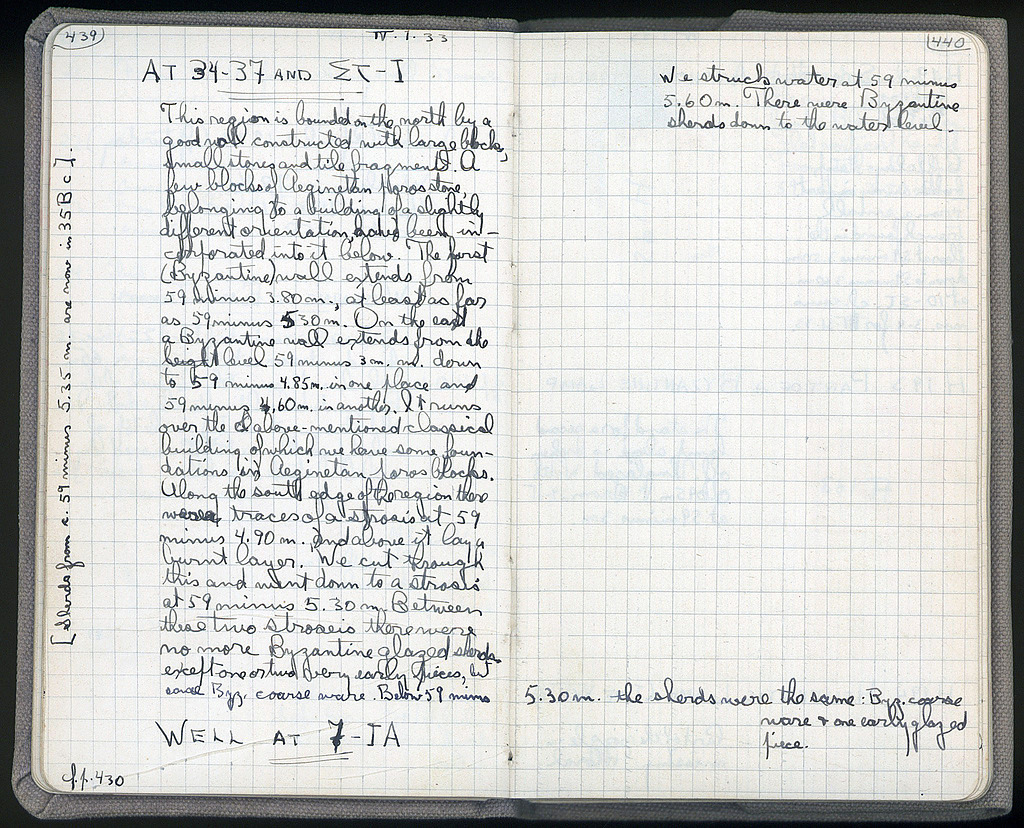 439
IV.1.33
AT 34-37 AND ΣΤ-I
This region is bounded on the north by a
good wall constructed with large blocks,
small stones and tile fragments. A
few blocks of Aeginetan poros stone,
belonging to a building of a slightly
different orientation, have been in-
corporated into it below. The first
(Byzantine) wall extends from
59 minus 3.80 m., at least as far
as 59 minus 5.30 m. On the east
a Byzantine wall extends from the
height level 59 minus 3 m. m. down
to 59 minus 4.85 m. in one place and
59 minus 4.60 m. in another. It runs
over the above-mentioned classical
building of which we have some foun-
dations in Aeginetan poros blocks.
Along the south edge of the region there
were traces of a strosis at 59
minus 4.90 m. and above it lay a
burnt layer. We cut through
this and went down to a strosis
at 59 minus 5.30 m. Between
these two stroseis there were
no more Byzantine glazed sherds
except one or two very early pieces, but
some Byz. coarse ware. Below 59 minus
WELL AT 7-IA
cf. p. 430
[Sherds from c. 59 minus 5.35 m. are now in 35 B c].
440
We struck water at 59 minus
5.60 m. There were Byzantine
sherds down to the water level.
5.30 m. the sherds were the same: Byz. coarse
ware & one early glazed
piece.